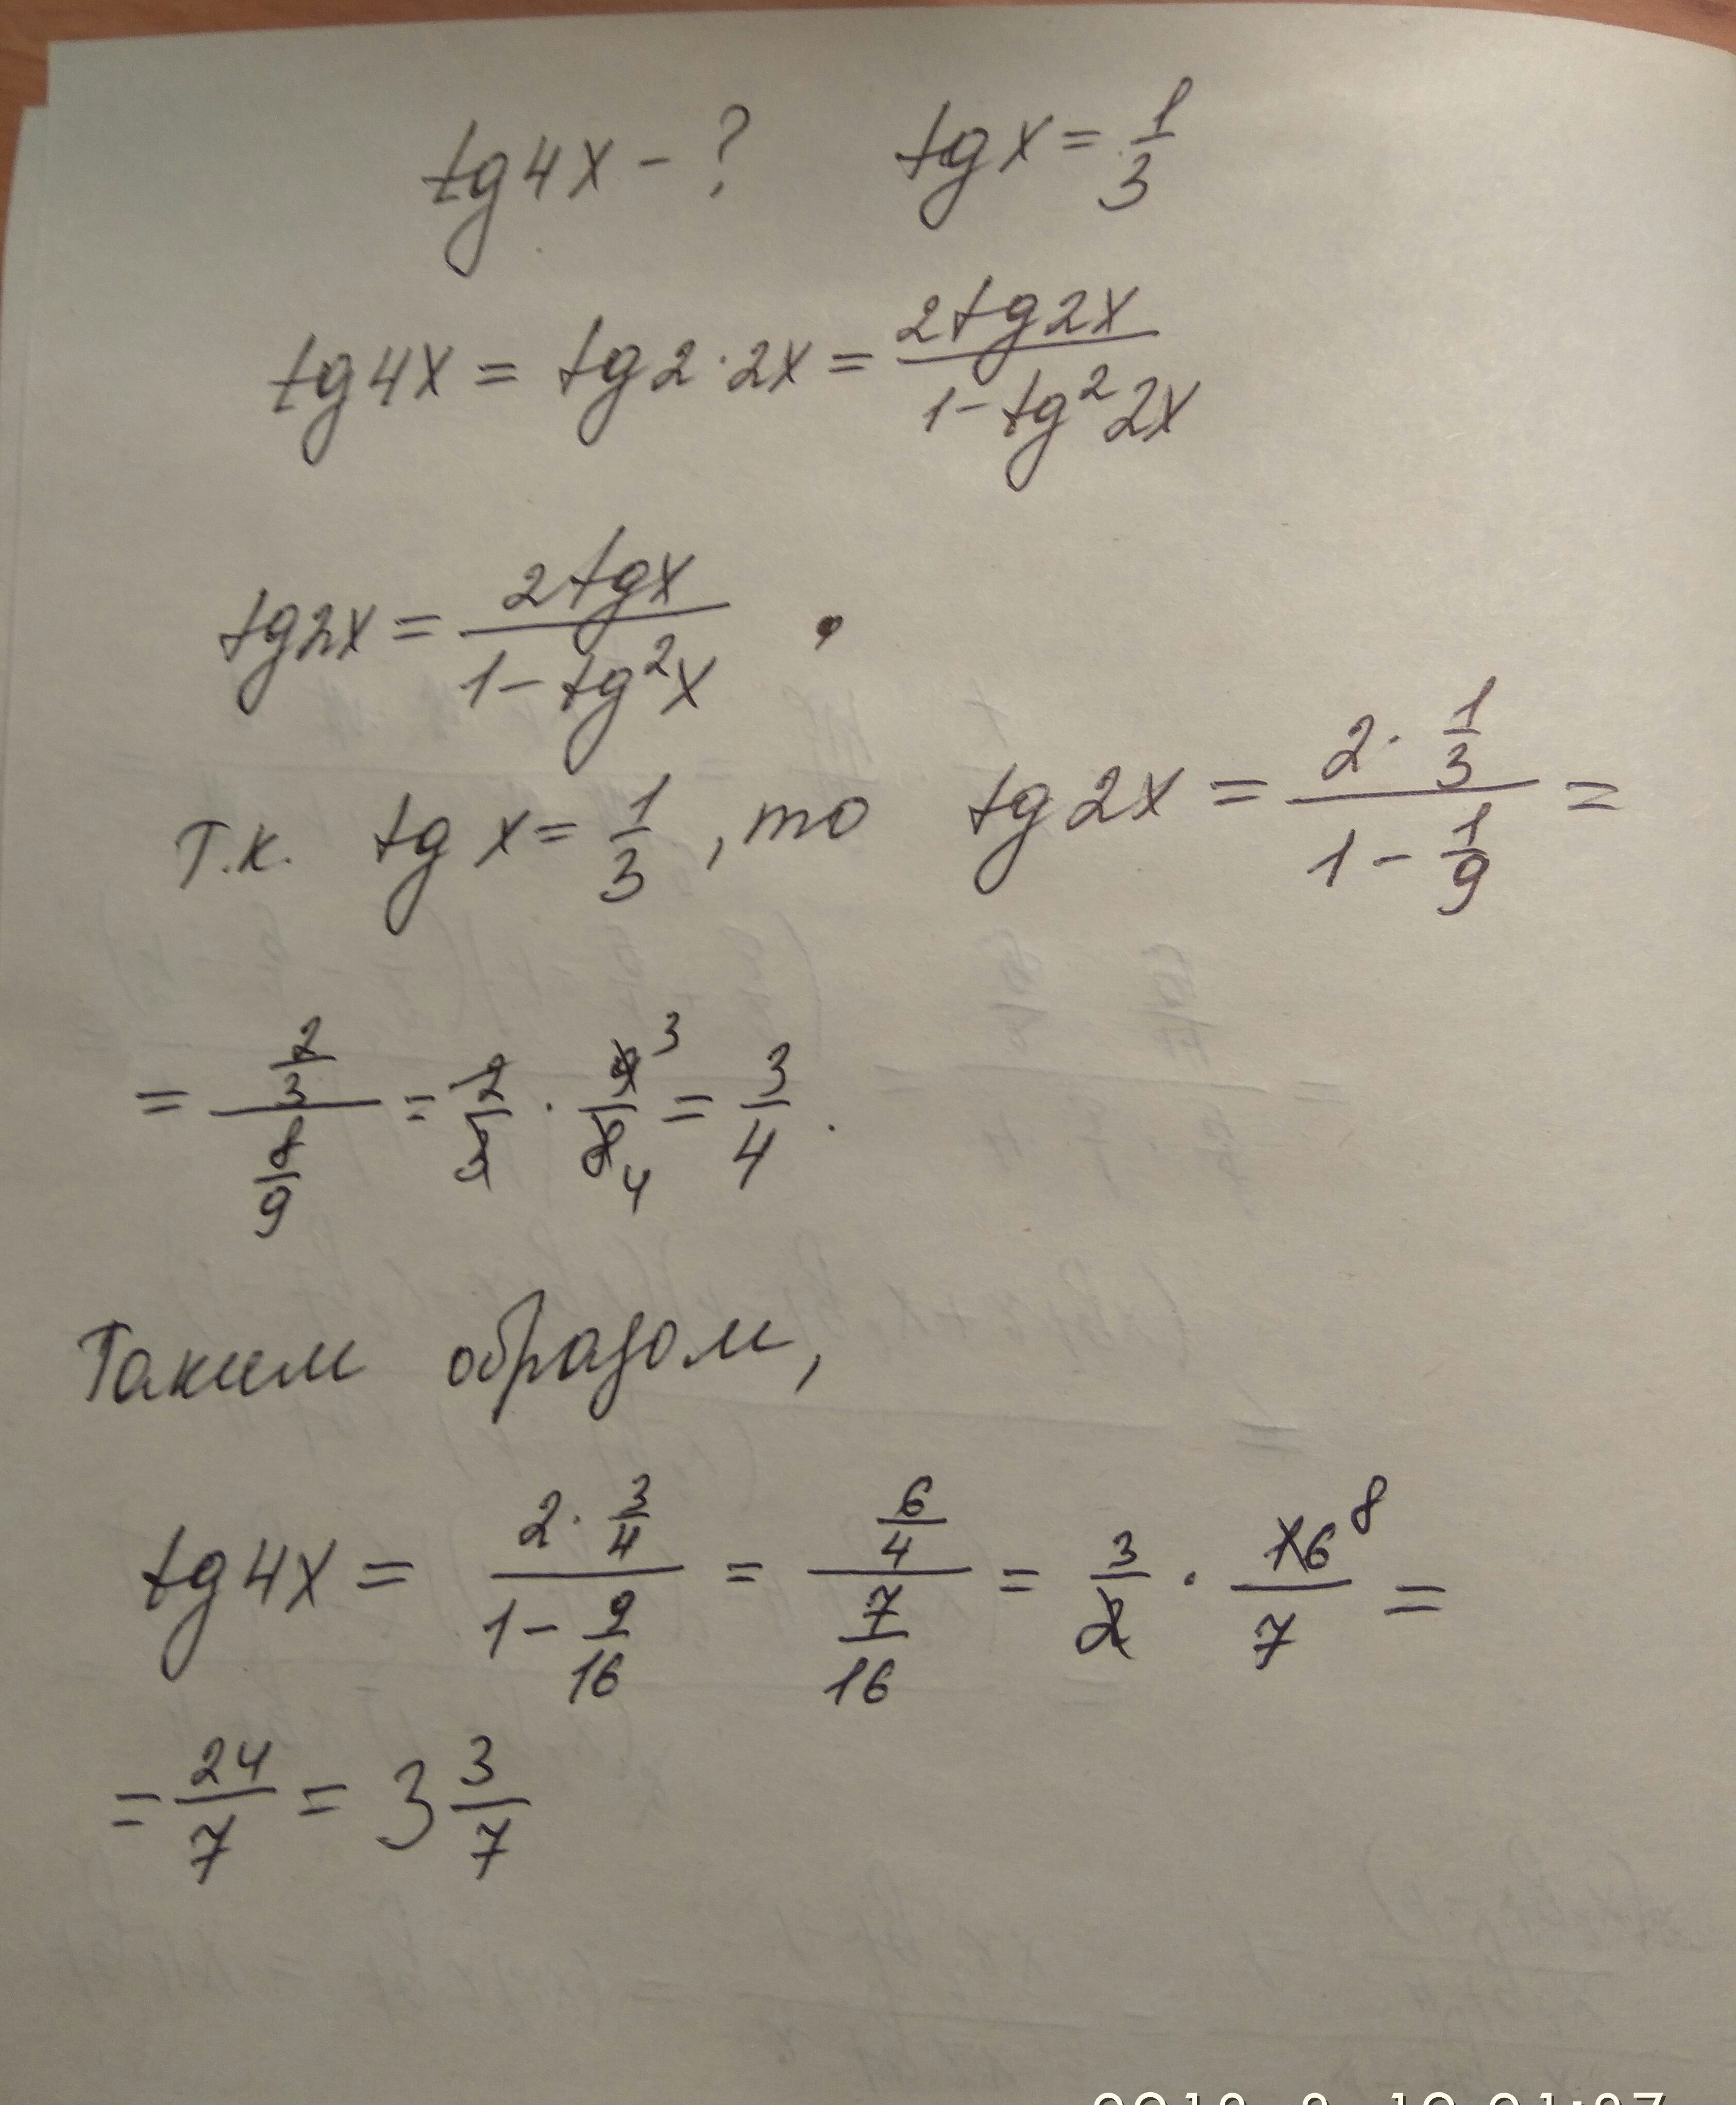 tg4x - ? tgx = 1/3
tg4x = tg2·2x = 2tg2x / 1-tg²2x
tg2x = 2tgx / 1-tg²x
т.к. tgx = 1/3, то tg2x = 2·1/3 / 1-1/9 =
= 2/3 / 8/9 = 2/3 · 9/8 3 4 = 3/4.
Таким образом,
tg4x = 2·3/4 / 1-9/16 = 6/4 / 7/16 = 3/2 · 16/7 8 =
= 24/7 = 3 3/7